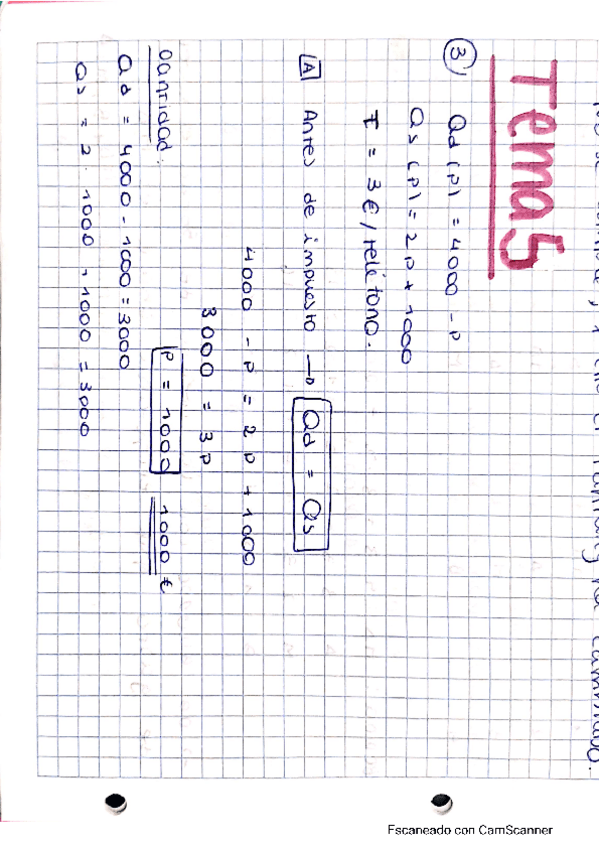 cambiado.
Tema 5
3 Qd (p) = 4000 - p
Qs (p) = 2p + 1000
T = 3 € / teléfono.
A Antes de impuesto → Qd = Qs
4000 - p = 2p + 1000
3000 = 3p
p = 1000 1000 €
Cantidad:
Qd = 4000 - 1000 = 3000
Qs = 2 · 1000 + 1000 = 3000
Escaneado con CamScanner